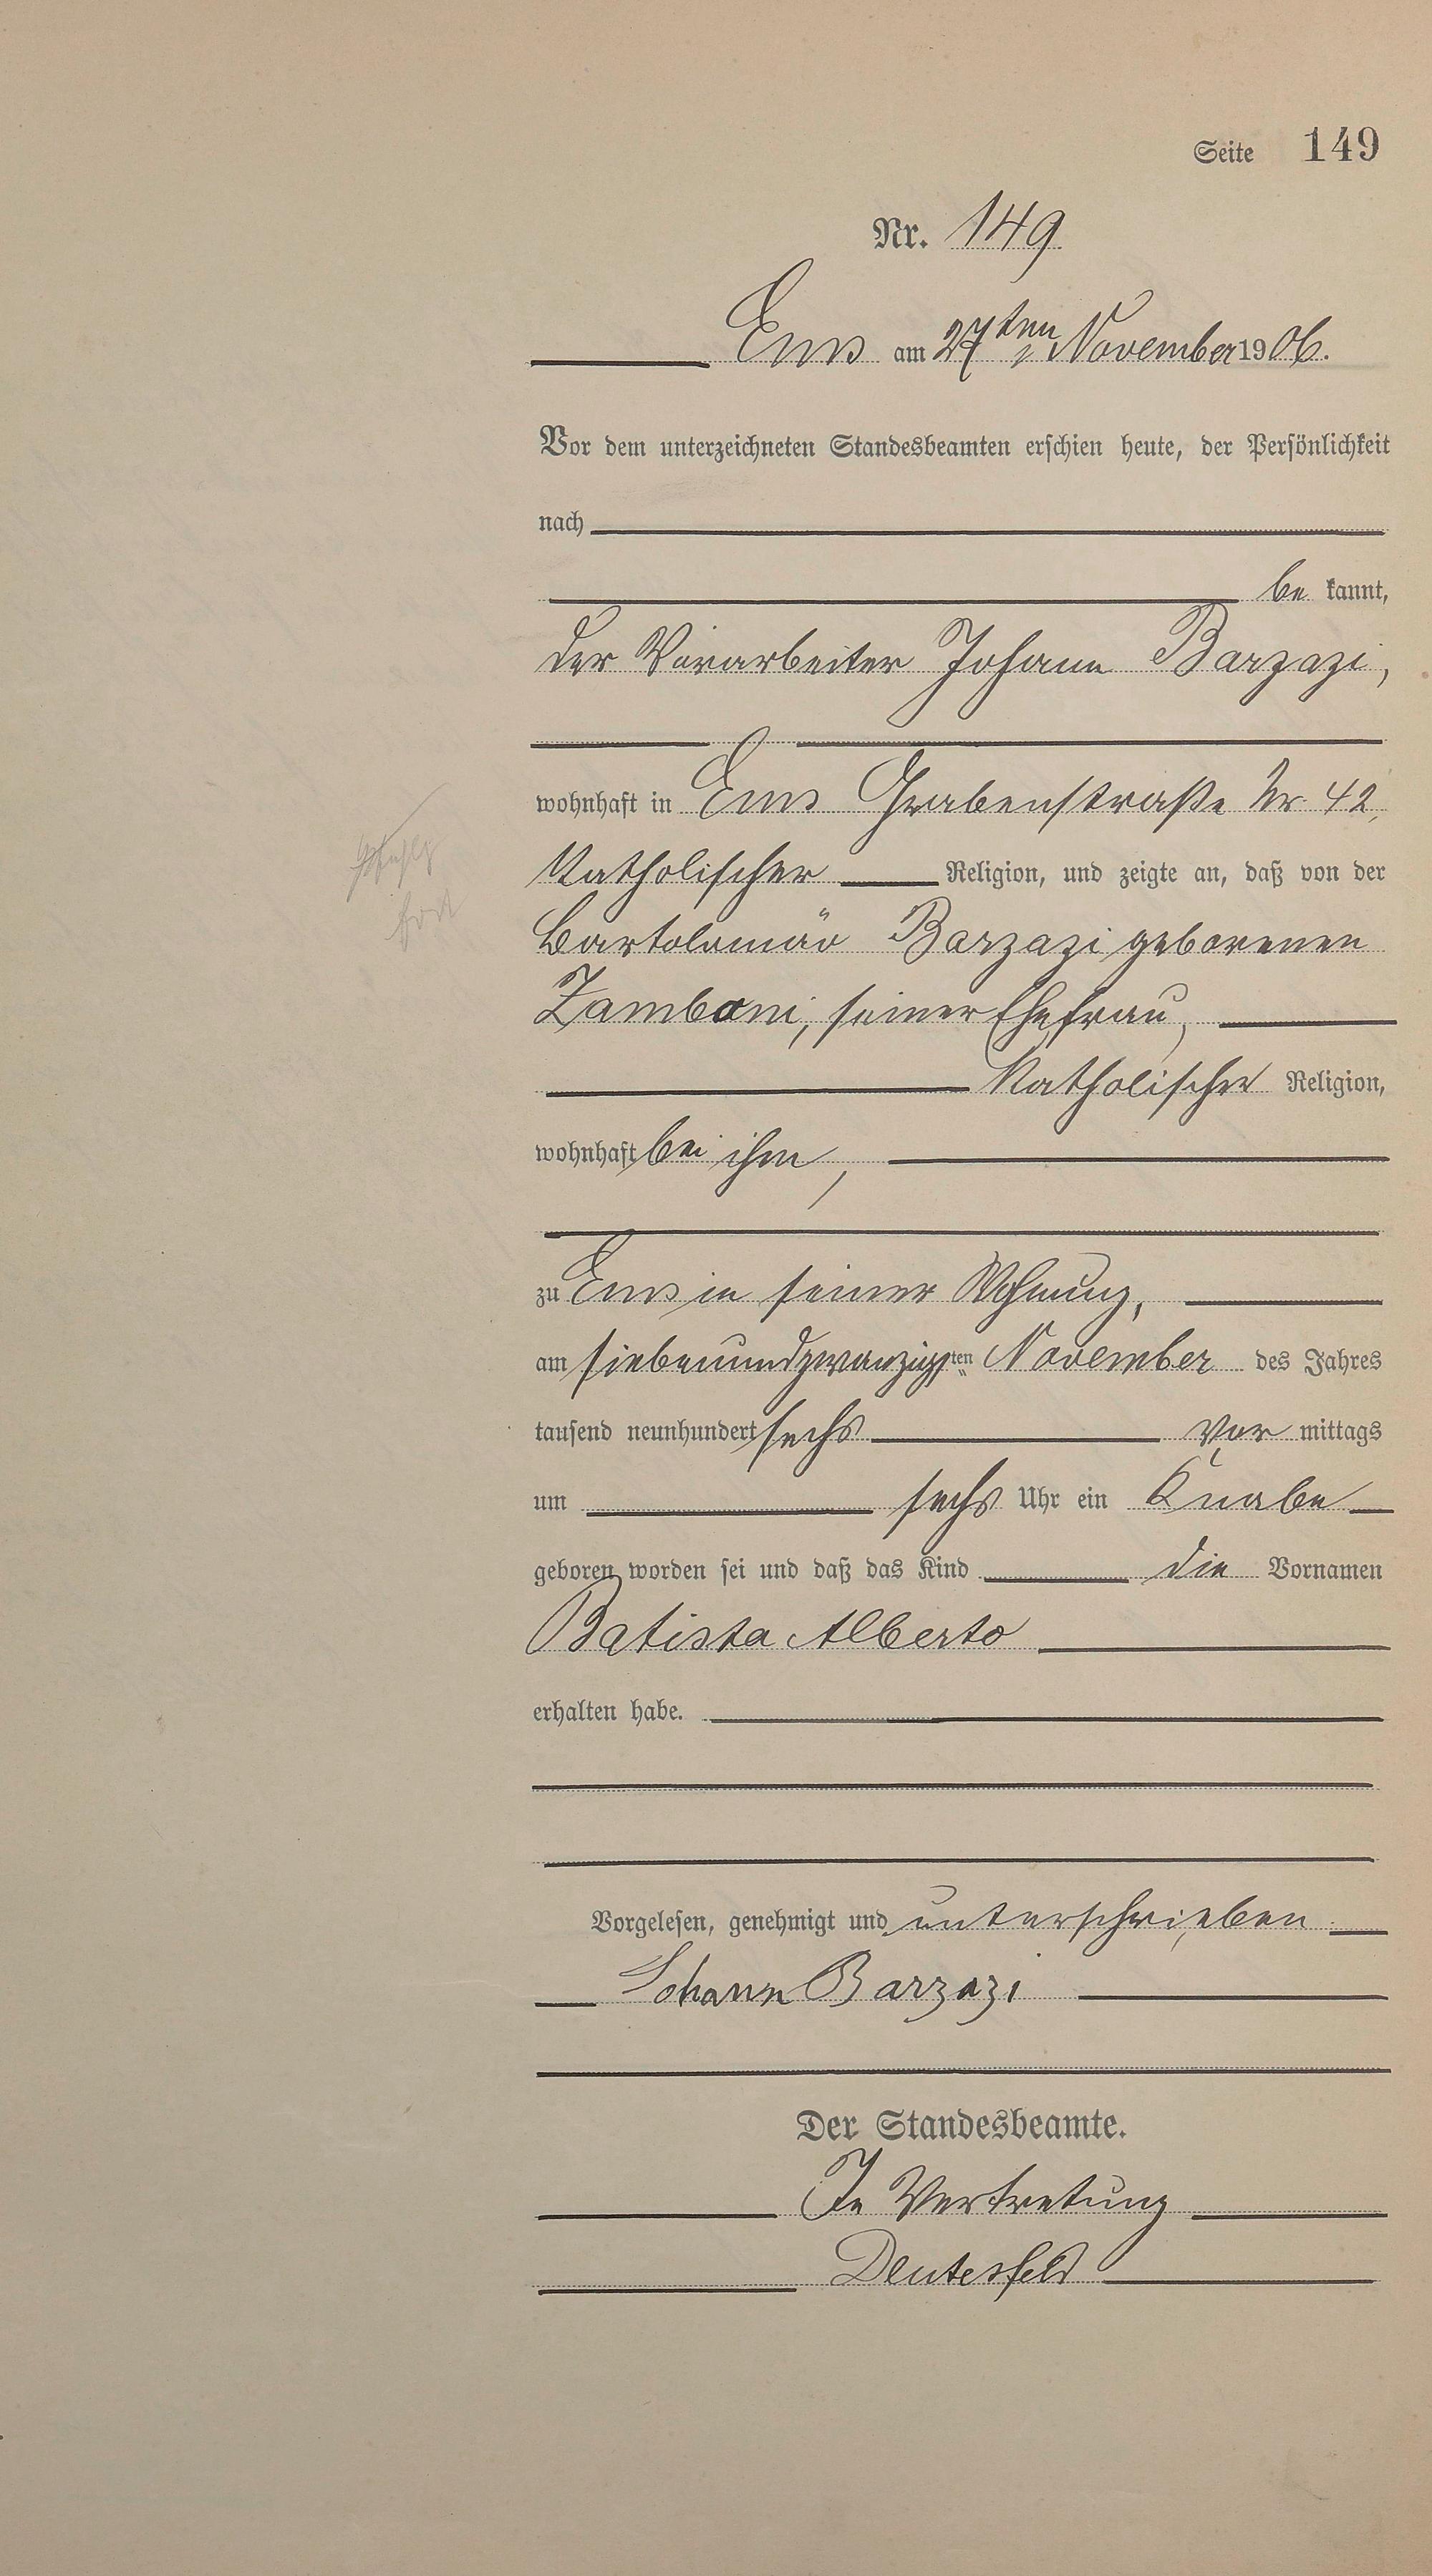 Seite 149
Nr. 149
Ems am 27ten November 1906.
Vor dem unterzeichneten Standesbeamten erschien heute, der Persönlichkeit
nach
be kannt,
der Vorarbeiter Johann Barzazi,
wohnhaft in Ems Grabenstraße Nr 42,
Katholischer Religion, und zeigte an, daß von der
Bartolomäo Barzazi geborenen
Zamboni, seiner Ehefrau,
Katholischer Religion,
wohnhaft bei ihm,
zu Ems in seiner Wohnung,
am siebenundzwanzigsten November des Jahres
tausend neunhundert sechs vor mittags
um sechs Uhr ein Knabe
geboren worden sei und daß das Kind die Vornamen
Batista Alberto
erhalten habe.
Vorgelesen, genehmigt und unterschrieben
Johann Barzazi
Der Standesbeamte.
In Vertretung